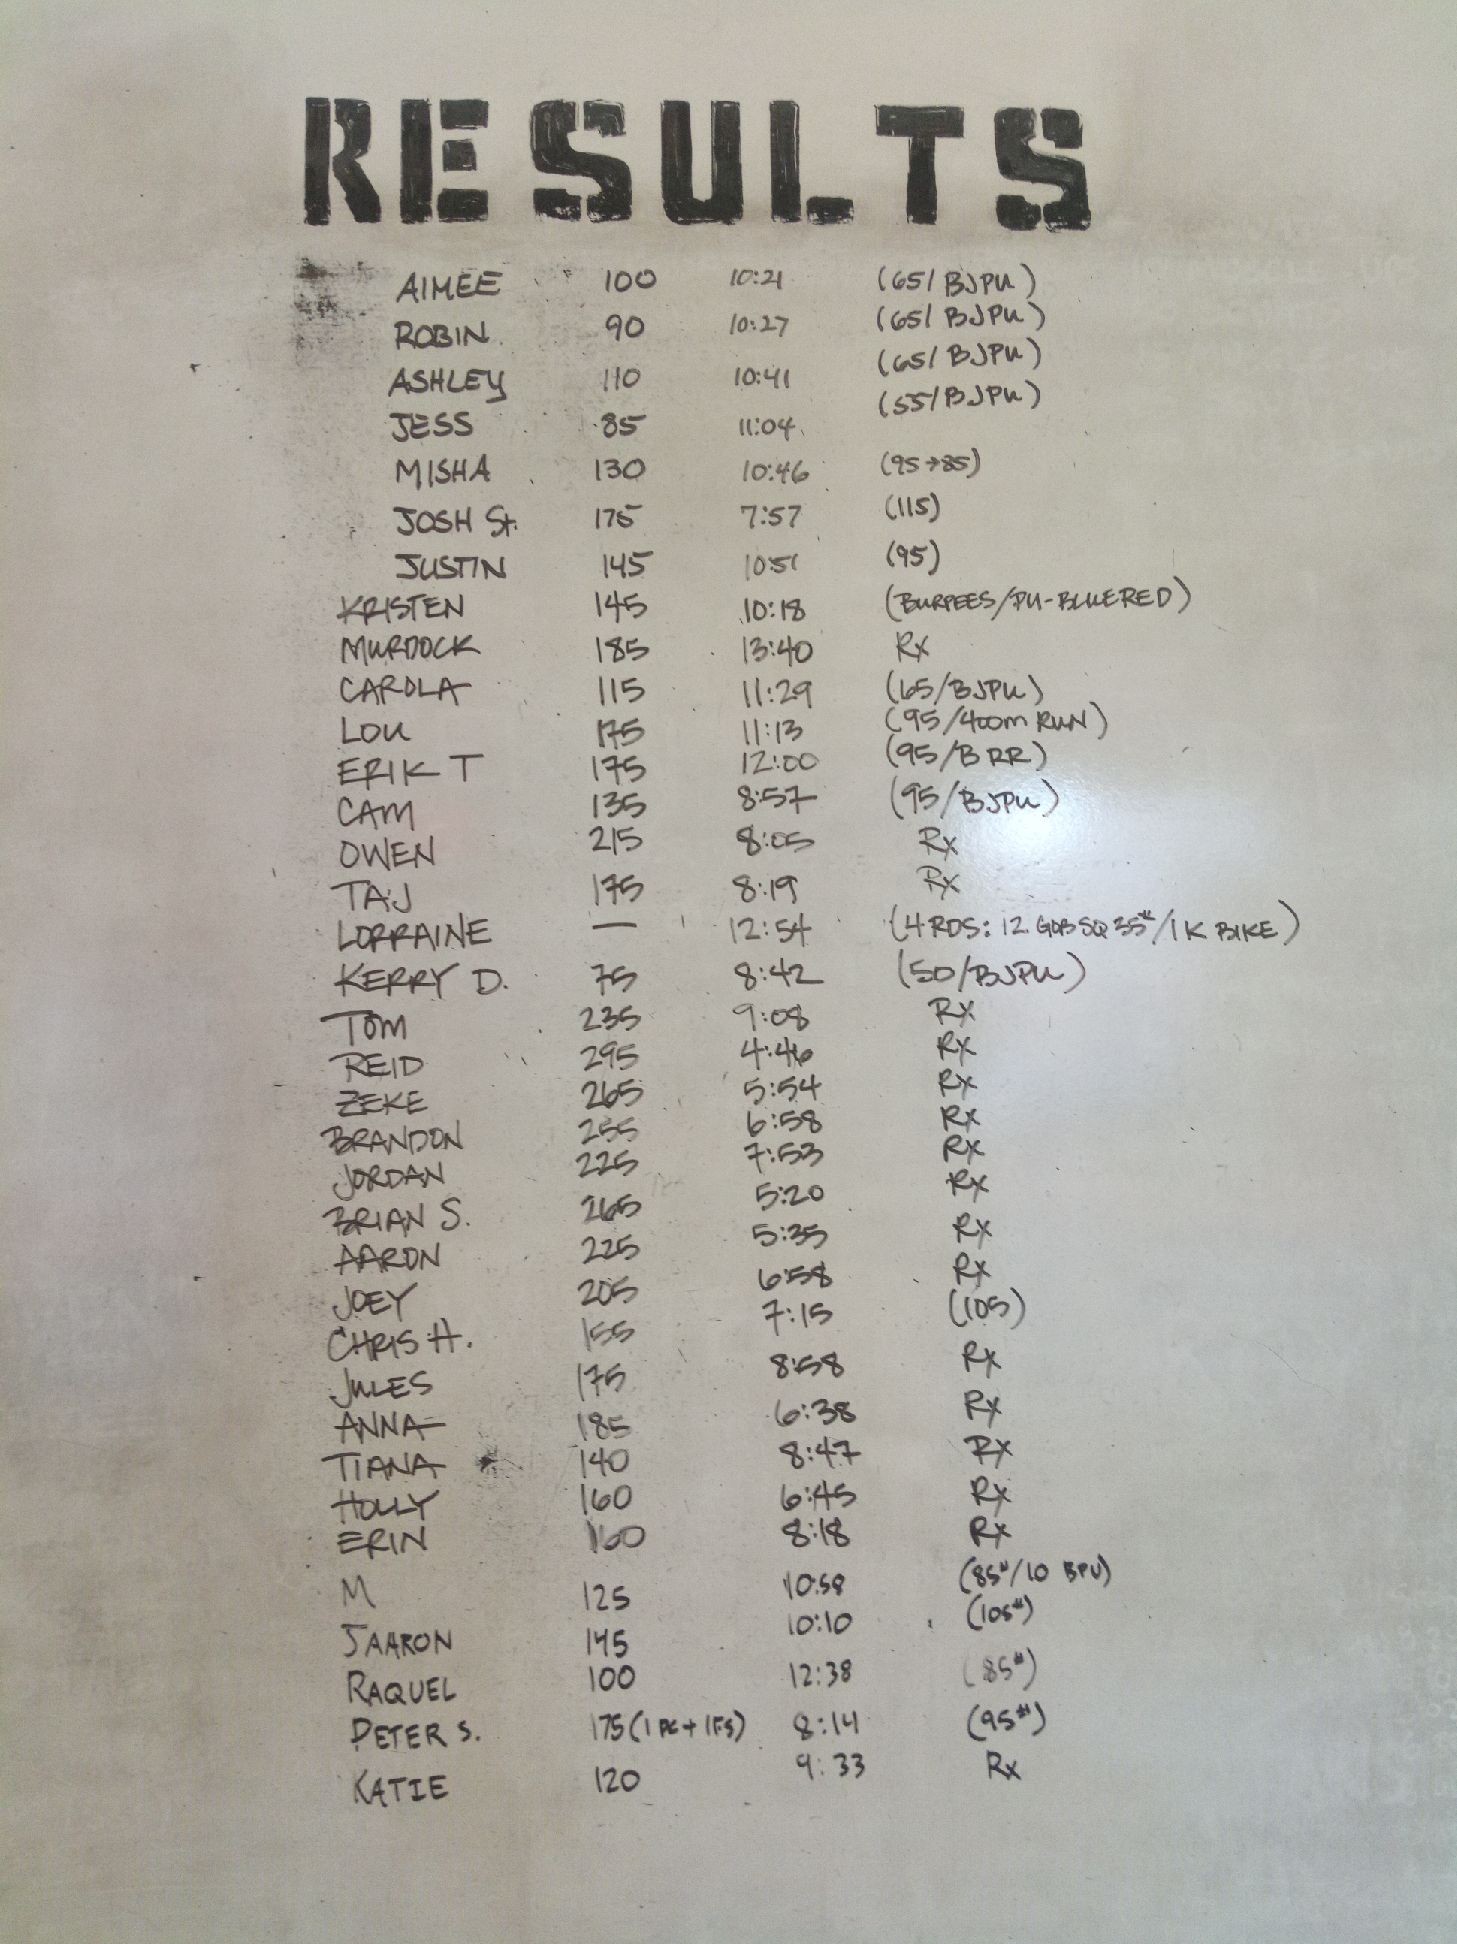 RESULTS
AIMEE 100 10:21 (65/BJPU)
ROBIN 90 10:27 (65/BJPU)
ASHLEY 110 10:41 (65/BJPU)
JESS 85 11:04 (55/BJPU)
MISHA 130 10:46 (95→85)
JOSH St. 175 7:57 (115)
JUSTIN 145 10:51 (95)
KRISTEN 145 10:18 (BURPEES/PU-BLUERED)
MURDOCK 185 13:40 Rx
CAROLA 115 11:29 (65/BJPU)
LOU 175 11:13 (95/400m RUN)
ERIK T 175 12:00 (95/B RR)
CAM 135 8:57 (95/BJPU)
OWEN 215 8:05 Rx
TAJ 175 8:19 Rx
LORRAINE — 12:54 (4 RDS: 12 GOBSQ 35#/1K BIKE)
KERRY D. 75 8:42 (50/BJPU)
TOM 235 9:08 Rx
REID 295 4:46 Rx
ZEKE 265 5:54 Rx
BRANDON 255 6:58 Rx
JORDAN 225 7:53 Rx
BRIAN S. 265 5:20 Rx
AARON 225 5:35 Rx
JOEY 205 6:58 Rx
CHRIS H. 155 7:15 (105)
JULES 175 8:58 Rx
ANNA 185 6:38 Rx
TIANA 140 8:47 Rx
HOLLY 160 6:45 Rx
ERIN 160 8:18 Rx
M 125 10:58 (85#/10 BPU)
JAARON 145 10:10 (105#)
RAQUEL 100 12:38 (85#)
PETER S. 175 (1 PC + 1FS) 8:14 (95#)
KATIE 120 9:33 Rx